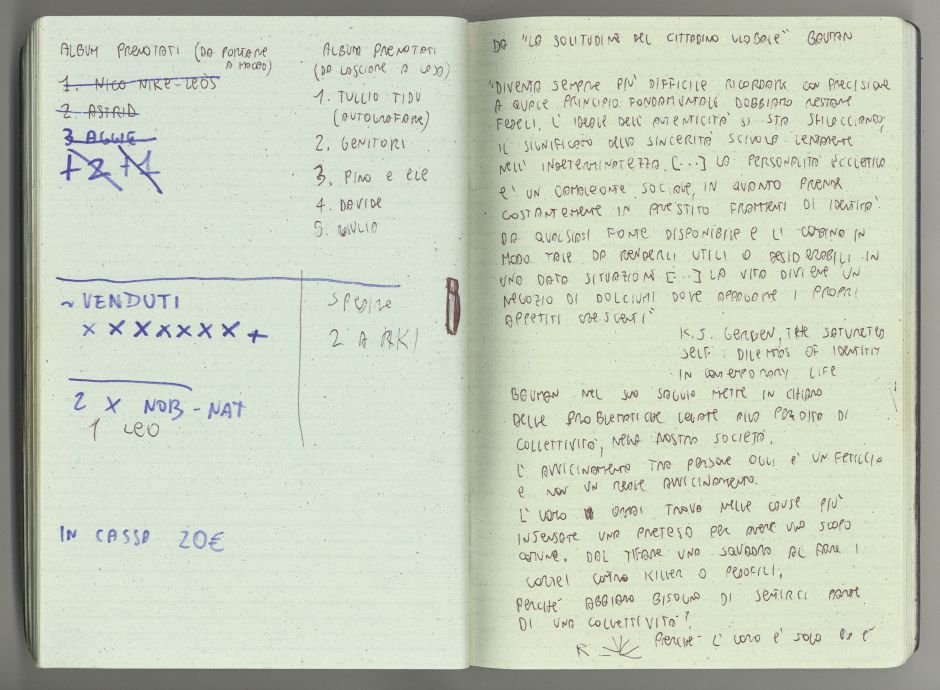 ALBUM PRENOTATI (DA PORTARE
A MACAO)
1. NICO NIKE-LEOS
2. ASTRID
3 AGGIE
+2 +1
ALBUM PRENOTATI
(DA LASCIARE A CASA)
1. TULLIO TIDU
(AUTOGRAFARE)
2. GENITORI
3. PINO E ELE
4. DAVIDE
5. GIULIO
~ VENDUTI
x x x x x x x +
SPEDIRE
2 A RKI
2 X NOB-NAT
1 LEO
IN CASSA 20€
DA "LA SOLITUDINE DEL CITTADINO GLOBALE" BAUMAN
"DIVENTA SEMPRE PIÙ DIFFICILE RICORDARE CON PRECISIONE
A QUALE PRINCIPIO FONDAMENTALE DOBBIAMO RESTARE
FEDELI. L'IDEALE DELL'AUTENTICITÀ SI STA SFILACCIANDO;
IL SIGNIFICATO DELLA SINCERITÀ SCIVOLA LENTAMENTE
NELL'INDETERMINATEZZA. [...] LA PERSONALITÀ ECLETTICA
E' UN CAMALEONTE SOCIALE, IN QUANTO PRENDE
COSTANTEMENTE IN PRESTITO FRAMMENTI DI IDENTITÀ
DA QUALSIASI FONTE DISPONIBILE E LI COMBINA IN
MODO TALE DA RENDERLI UTILI O DESIDERABILI IN
UNA DATA SITUAZIONE [...] LA VITA DIVIENE UN
NEGOZIO DI DOLCIUMI DOVE APPAGARE I PROPRI
APPETITI CRESCENTI"
K.J. GERGEN, THE SATURATED
SELF: DILEMMAS OF IDENTITY
IN CONTEMPORARY LIFE
BAUMAN NEL SUO SAGGIO METTE IN CHIARO
DELLE PROBLEMATICHE LEGATE ALLA PERDITA DI
COLLETTIVITÀ, NELLA NOSTRA SOCIETÀ.
L'AVVICINAMENTO TRA PERSONE OGGI E' UN FETICCIO
E NON UN REALE AVVICINAMENTO.
L'UOMO ORMAI TROVA NELLE CAUSE PIÙ
INSENSATE UNA PRETESA PER AVERE UNO SCOPO
COMUNE. DAL TIFARE UNA SQUADRA AL FARE I
CORTEI CONTRO KILLER O PEDOFILI.
PERCHÉ ABBIAMO BISOGNO DI SENTIRCI PARTE
DI UNA COLLETTIVITÀ?
PERCHÉ L'UOMO E' SOLO E